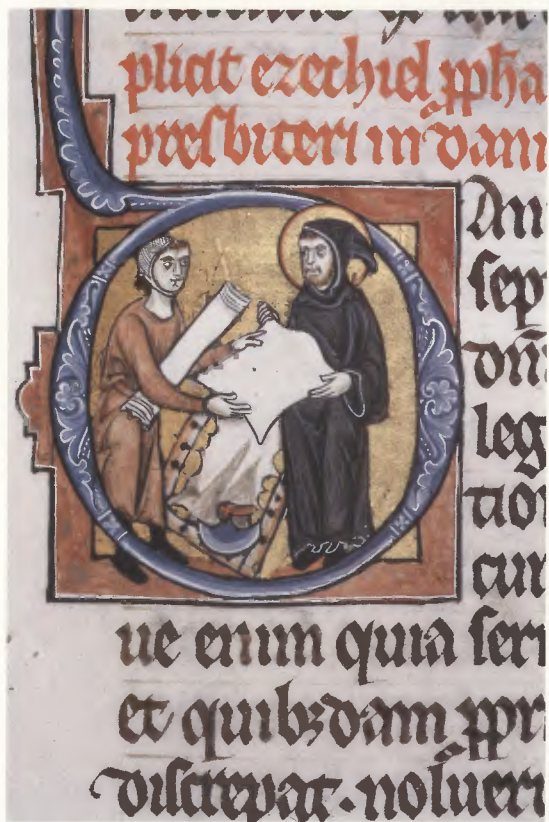 plicat ezechiel ppha
presbiteri in dani
An
sep
dñ
leg
tion
cur
ue erim quia seri
et quibzdam ppr
discrepat. nolueri